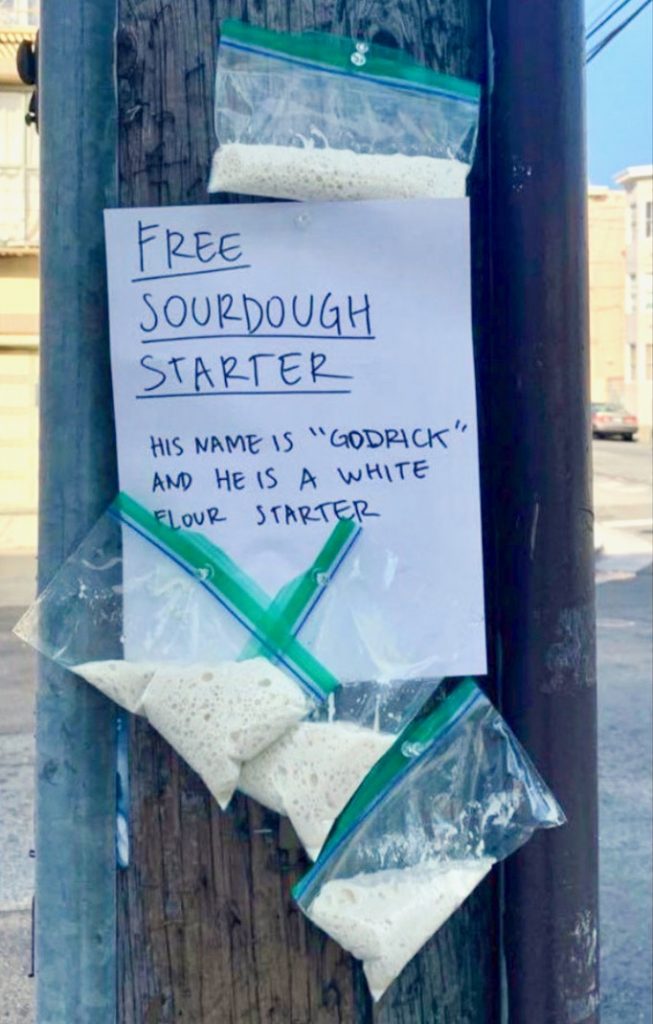 FREE
SOURDOUGH
STARTER
HIS NAME IS "GODRICK"
AND HE IS A WHITE
FLOUR STARTER